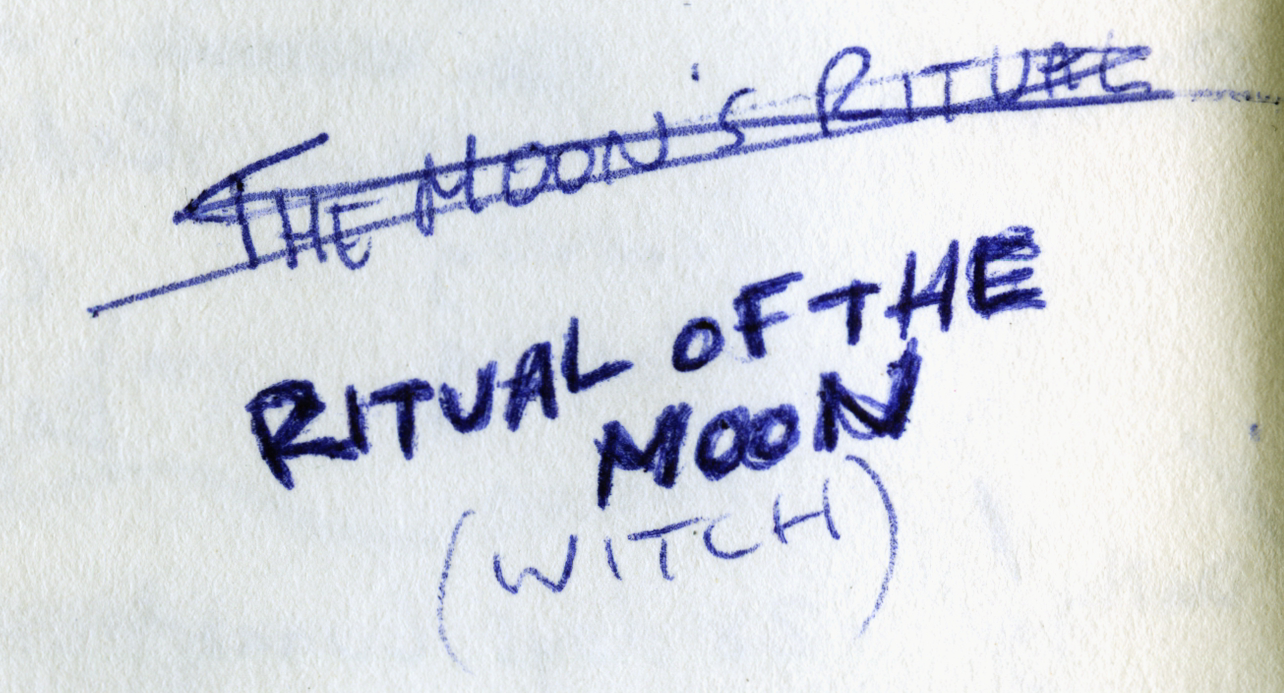 THE MOON'S RITUAL
RITUAL OF THE
MOON
(WITCH)